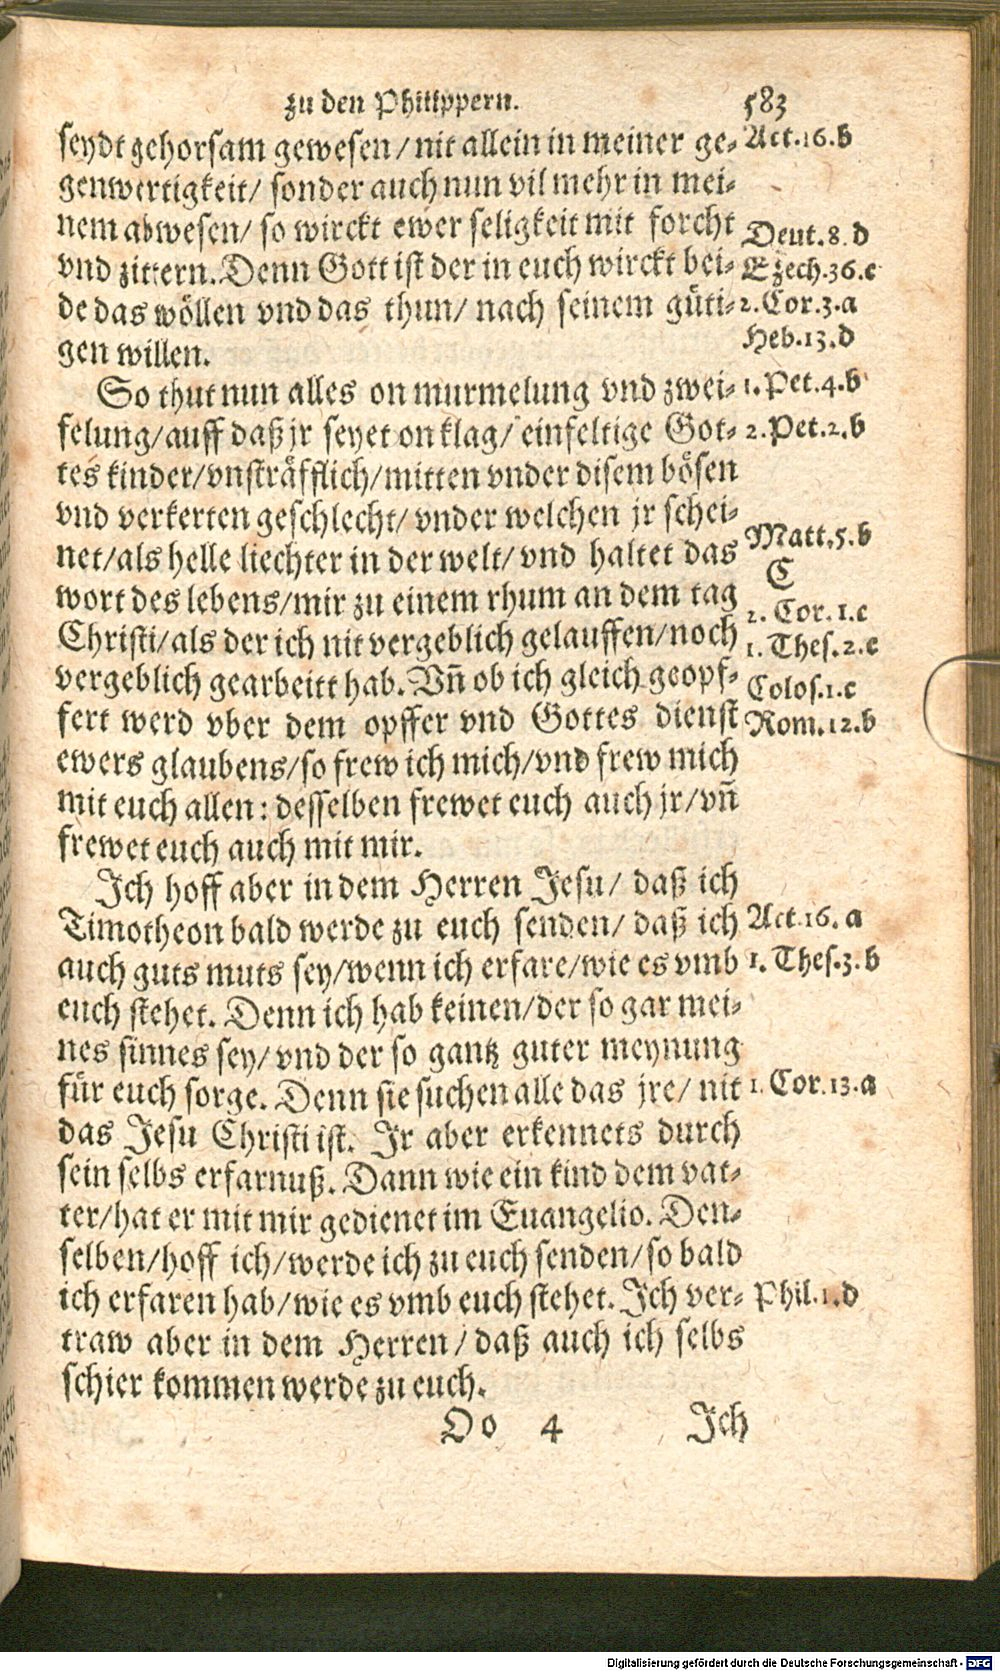 zu den Philippern. 583
seydt gehorsam gewesen/nit allein in meiner ge- Act.16.b
genwertigkeit/ sonder auch nun vil mehr in mei-
nem abwesen/ so wirckt ewer seligkeit mit forcht
vnd zittern. Denn Gott ist der in euch wirckt bei-
de das wöllen vnd das thun/ nach seinem güti-
gen willen.
Deut.8.d
Ezech.36.c
2.Cor.3.a
Heb.13.d
So thut nun alles on murmelung vnd zwei- 1.Pet.4.b
felung/auff daß jr seyet on klag/ einfeltige Got- 2.Pet.2.b
tes kinder/vnsträfflich/mitten vnder disem bösen
vnd verkerten geschlecht/ vnder welchen jr schei-
net/als helle liechter in der welt/ vnd haltet das
wort des lebens/mir zu einem rhum an dem tag
Christi/als der ich nit vergeblich gelauffen/noch
vergeblich gearbeitt hab. Vn̄ ob ich gleich geopf-
fert werd vber dem opffer vnd Gottes dienst
Matt.5.b
C
2. Cor.1.c
1. Thes.2.c
Colos.1.c
Rom.12.b
ewers glaubens/so frew ich mich/vnd frew mich
mit euch allen: desselben frewet euch auch jr/vn̄
frewet euch auch mit mir.
Ich hoff aber in dem Herren Jesu/ daß ich
Timotheon bald werde zu euch senden/ daß ich Act.16.a
auch guts muts sey/wenn ich erfare/wie es vmb 1. Thes.3.b
euch stehet. Denn ich hab keinen/der so gar mei-
nes sinnes sey/ vnd der so gantz guter meynung
für euch sorge. Denn sie suchen alle das jre/ nit 1. Cor.13.a
das Jesu Christi ist. Ir aber erkennets durch
sein selbs erfarnuß. Dann wie ein kind dem vat-
ter/hat er mit mir gedienet im Euangelio. Den-
selben/hoff ich/werde ich zu euch senden/so bald
ich erfaren hab/wie es vmb euch stehet. Ich ver- Phil.1.d
traw aber in dem Herren/ daß auch ich selbs
schier kommen werde zu euch.
Oo 4 Ich
Digitalisierung gefördert durch die Deutsche Forschungsgemeinschaft - DFG